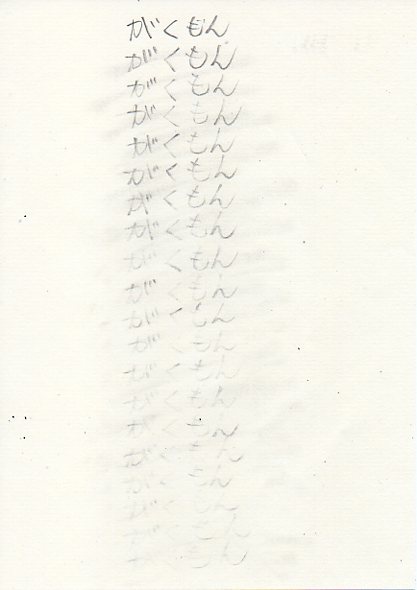 がくもん
がくもん
がくもん
がくもん
がくもん
がくもん
がくもん
がくもん
がくもん
がくもん
がくもん
がくもん
がくもん
がくもん
がくもん
がくもん
がくもん
がくもん
がくもん
がくもん